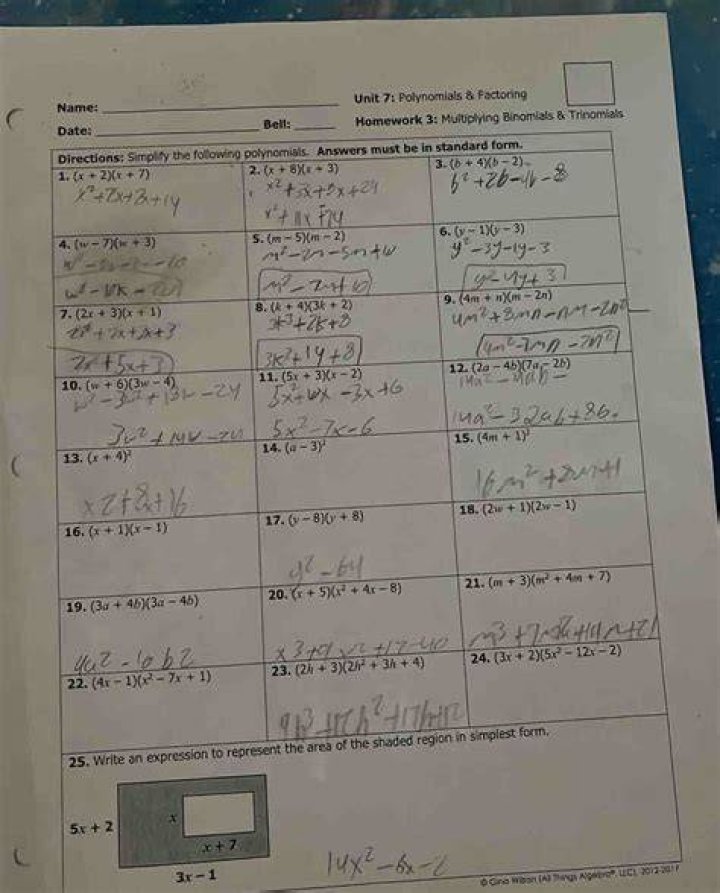 Name:
Unit 7: Polynomials & Factoring
Date:
Bell:
Homework 3: Multiplying Binomials & Trinomials
Directions: Simplify the following polynomials. Answers must be in standard form.
1. (x + 2)(x + 7)
x²+7x+2x+14
2. (x + 8)(x + 3)
x²+3x+8x+24
x²+11x+24
3. (b + 4)(b − 2)
b²+2b-4b-8
4. (w − 7)(w + 3)
5. (m − 5)(m − 2)
m²-2m-5m+10
6. (y − 1)(y − 3)
y²-3y-1y-3
y²-4y+3
7. (2x + 3)(x + 1)
2x+5x+3
8. (k + 4)(3k + 2)
3k²+14+8
9. (4m + n)(m − 2n)
4m²+8mn-nm-2n²
4m²-7mn-2n²
10. (w + 6)(3w − 4)
11. (5x + 3)(x − 2)
5x²-7x-6
12. (2a − 4b)(7a − 2b)
14a²-32ab+8b
13. (x + 4)²
x2+8x+16
14. (a − 3)²
15. (4m + 1)²
16m²+8m+1
16. (x + 1)(x − 1)
17. (y − 8)(y + 8)
y²-64
18. (2w + 1)(2w − 1)
19. (3a + 4b)(3a − 4b)
20. (x + 5)(x² + 4x − 8)
21. (m + 3)(m² + 4m + 7)
22. (4x − 1)(x² − 7x + 1)
23. (2h + 3)(2h² + 3h + 4)
24. (3x + 2)(5x² − 12x − 2)
25. Write an expression to represent the area of the shaded region in simplest form.
5x + 2
x
x + 7
3x − 1
14x²-6x-2
© Gina Wilson (All Things Algebra®, LLC), 2012-2017